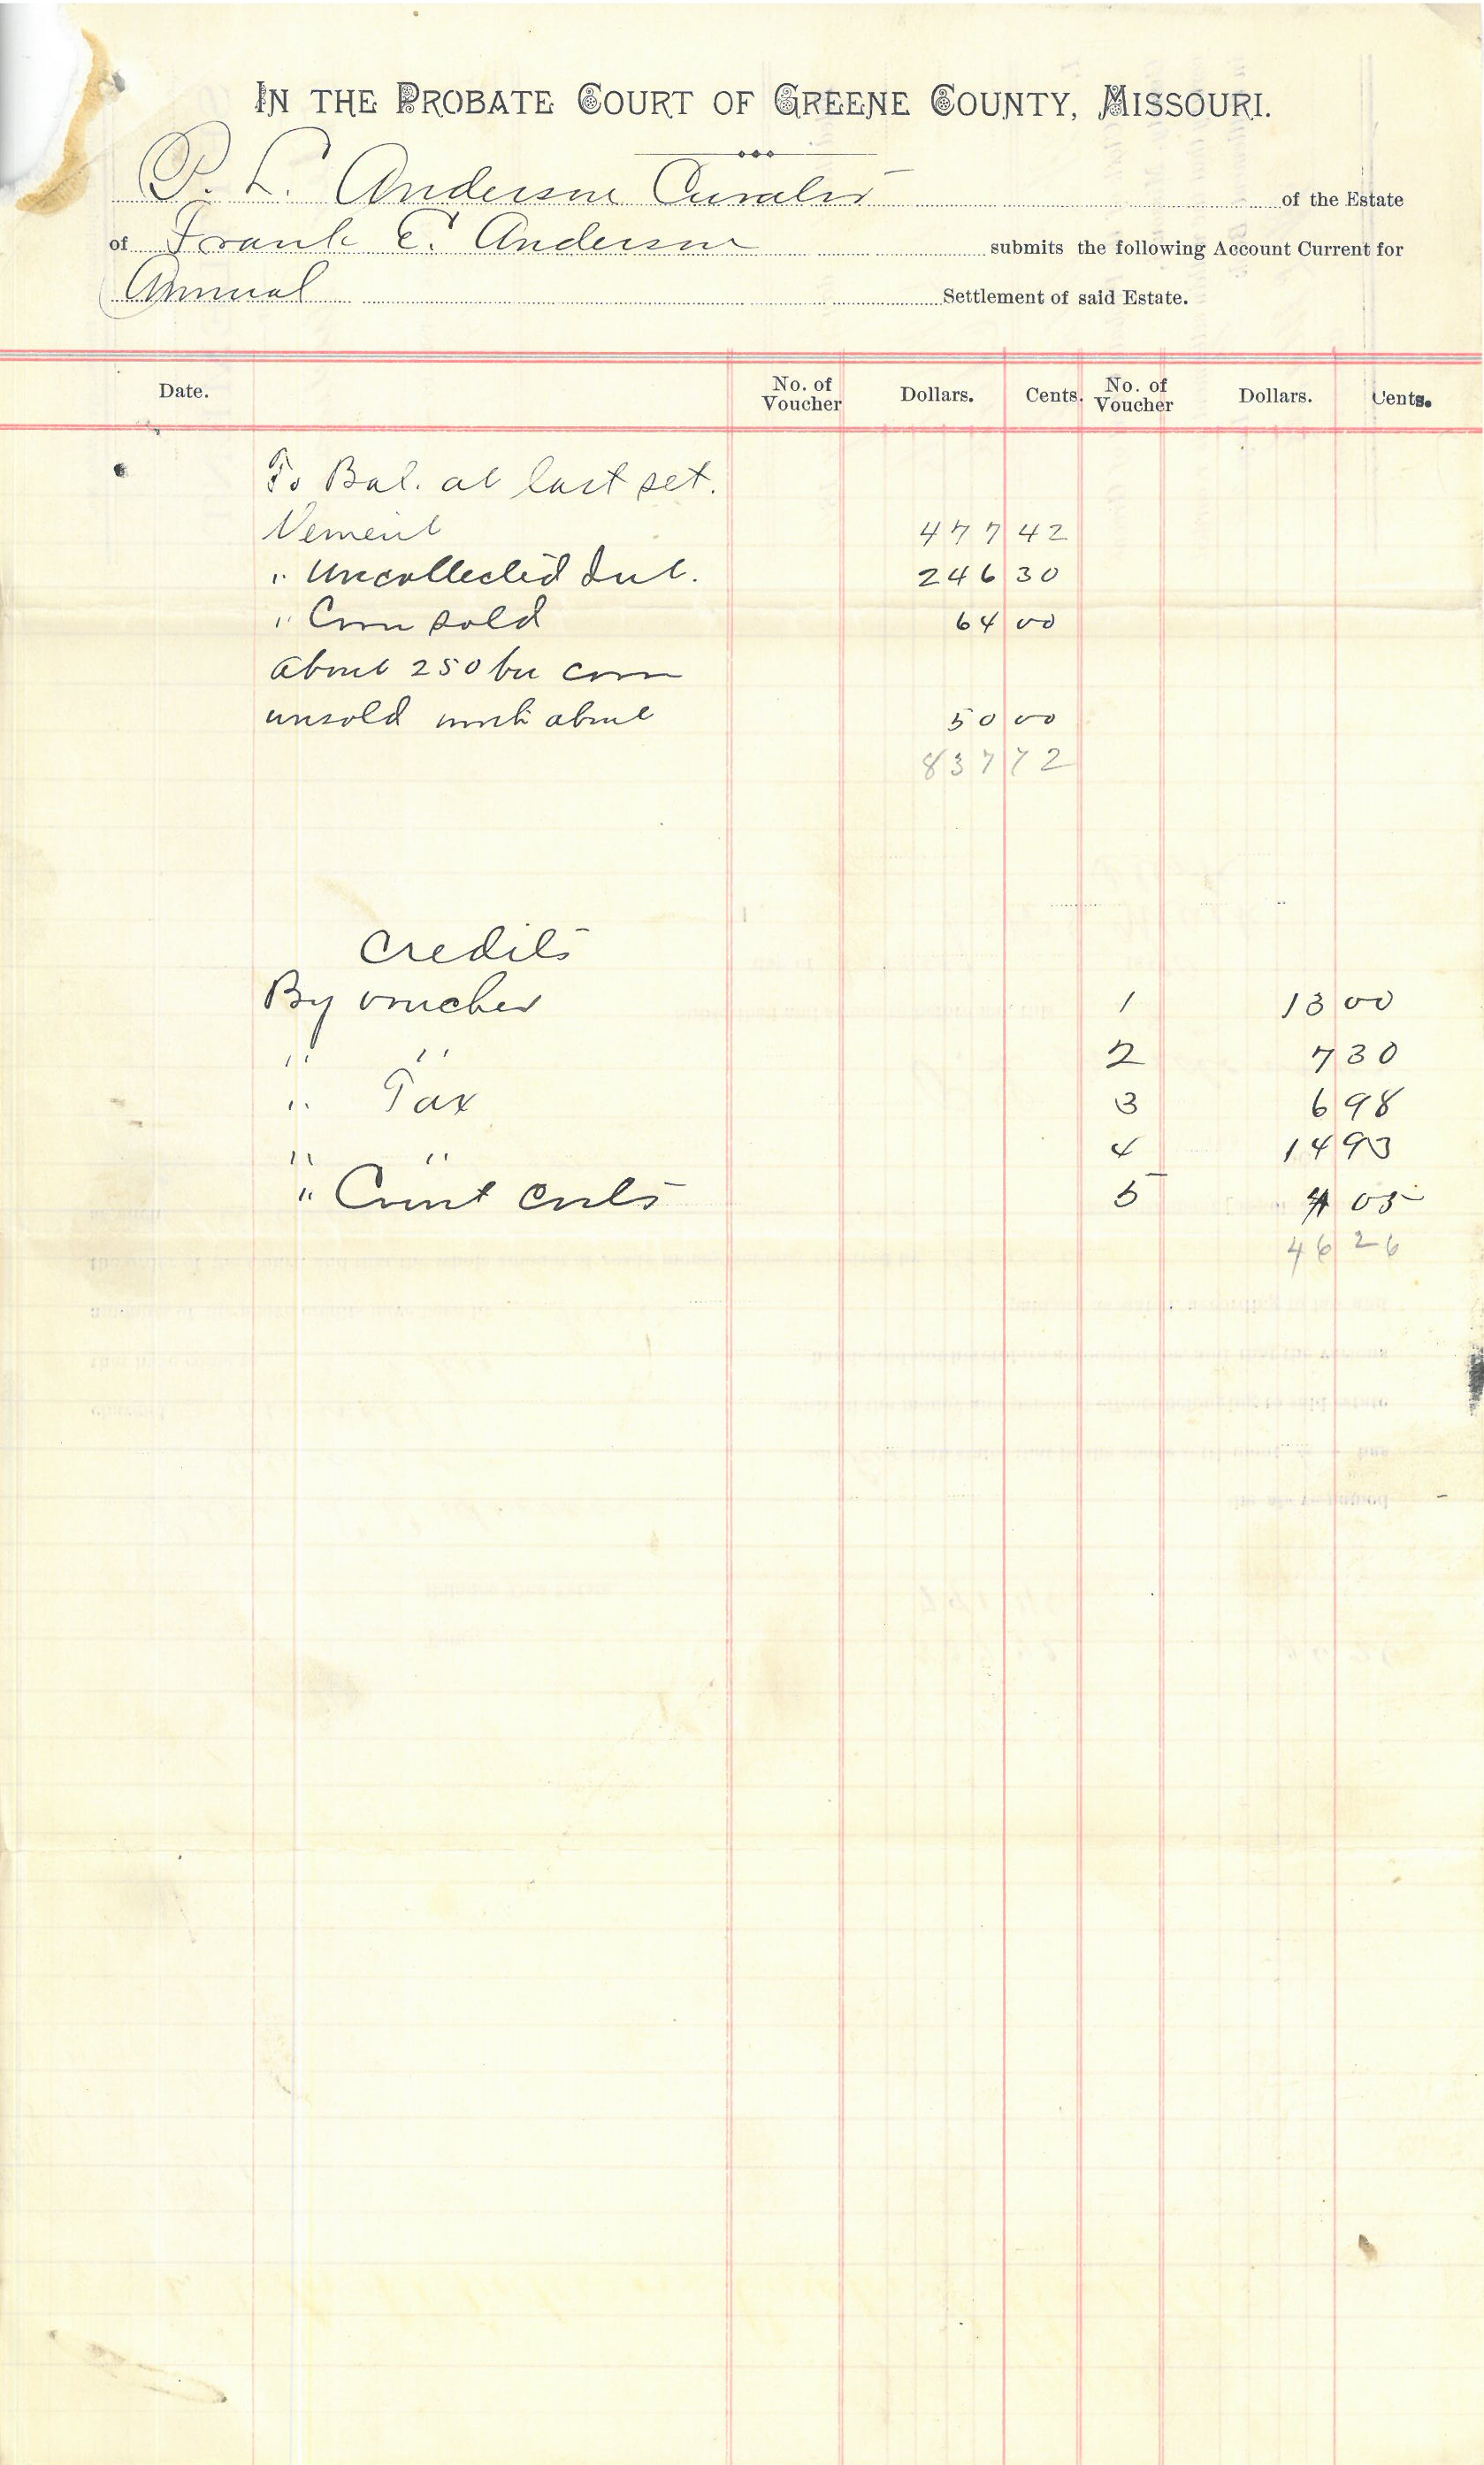 IN THE PROBATE COURT OF GREENE COUNTY, MISSOURI.
P. L. Anderson Curator of the Estate
of Frank E. Anderson submits the following Account Current for
Annual Settlement of said Estate.
Date. No. of Voucher Dollars. Cents. No. of Voucher Dollars. Cents.
To Bal. at last set.
tlement 477 42
" Uncollected Int. 246 30
" Corn sold 64 00
about 250 bu corn
unsold worth about 50 00
837 72
Credits
By voucher 1 13 00
" " 2 7 30
" Tax 3 6 98
" " 4 14 93
" Court costs 5 4 05
46 26